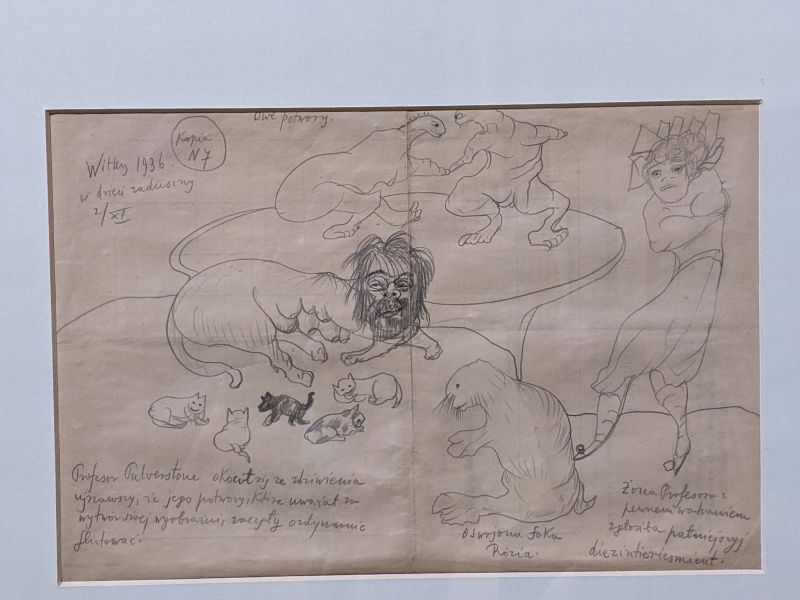 Dwe potwory.
Kopia
N 7
Witkacy 1936
w dzień zaduszny
2/XI
Profesor Pulverstone okocił się ze zdziwienia
ujrzawszy, że jego potwory, które uważał za
wytwór swej wyobraźni, zaczęły ordynarnie
flirtować.
Oswojona foka
Rózia.
Żona Profesora z
pewnem wahaniem
zgłosiła pałniejszyj
diezintieriesmient.